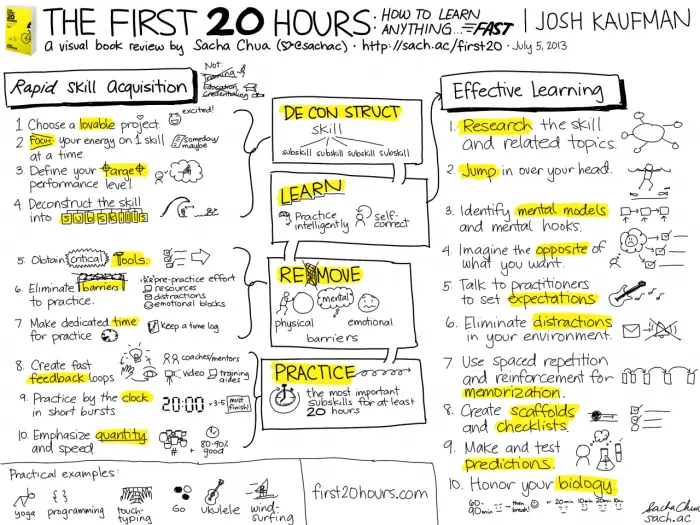 THE FIRST 20 HOURS: HOW TO LEARN ANYTHING... FAST | JOSH KAUFMAN
a visual book review by Sacha Chua (@sachac) · http://sach.ac/first20 · July 5, 2013
Rapid Skill Acquisition
Not:
Training
Education
Credentialing
1. Choose a lovable project.
excited!
2. Focus your energy on 1 skill
at a time
someday/
maybe
3. Define your target
performance level.
4. Deconstruct the skill
into subskills
5. Obtain critical tools.
6. Eliminate barriers
to practice.
pre-practice effort
resources
distractions
emotional blocks
7. Make dedicated time
for practice
Keep a time log
8. Create fast
feedback loops
coaches/mentors
video
training
aides
9. Practice by the clock
in short bursts
20:00 × 3-5 must
finish!
10. Emphasize quantity
and speed
# +
80-90%
good
DECONSTRUCT
skill
subskill subskill subskill subskill
LEARN
Practice
intelligently
self-
correct
REMOVE
mental
physical
emotional
barriers
PRACTICE
the most important
subskills for at least
20 hours
Effective Learning
1. Research the skill
and related topics.
2. Jump in over your head.
3. Identify mental models
and mental hooks.
4. Imagine the opposite of
what you want.
5. Talk to practitioners
to set expectations
6. Eliminate distractions
in your environment.
7. Use spaced repetition
and reinforcement for
memorization.
8. Create scaffolds
and checklists.
9. Make and test
predictions.
10. Honor your biology.
60-
90min
then
break!
20min 10min 20min 10m
Practical examples:
yoga
{ }
programming
touch-
typing
Go
ukulele
wind-
surfing
first20hours.com
Sacha Chua
sach.ac